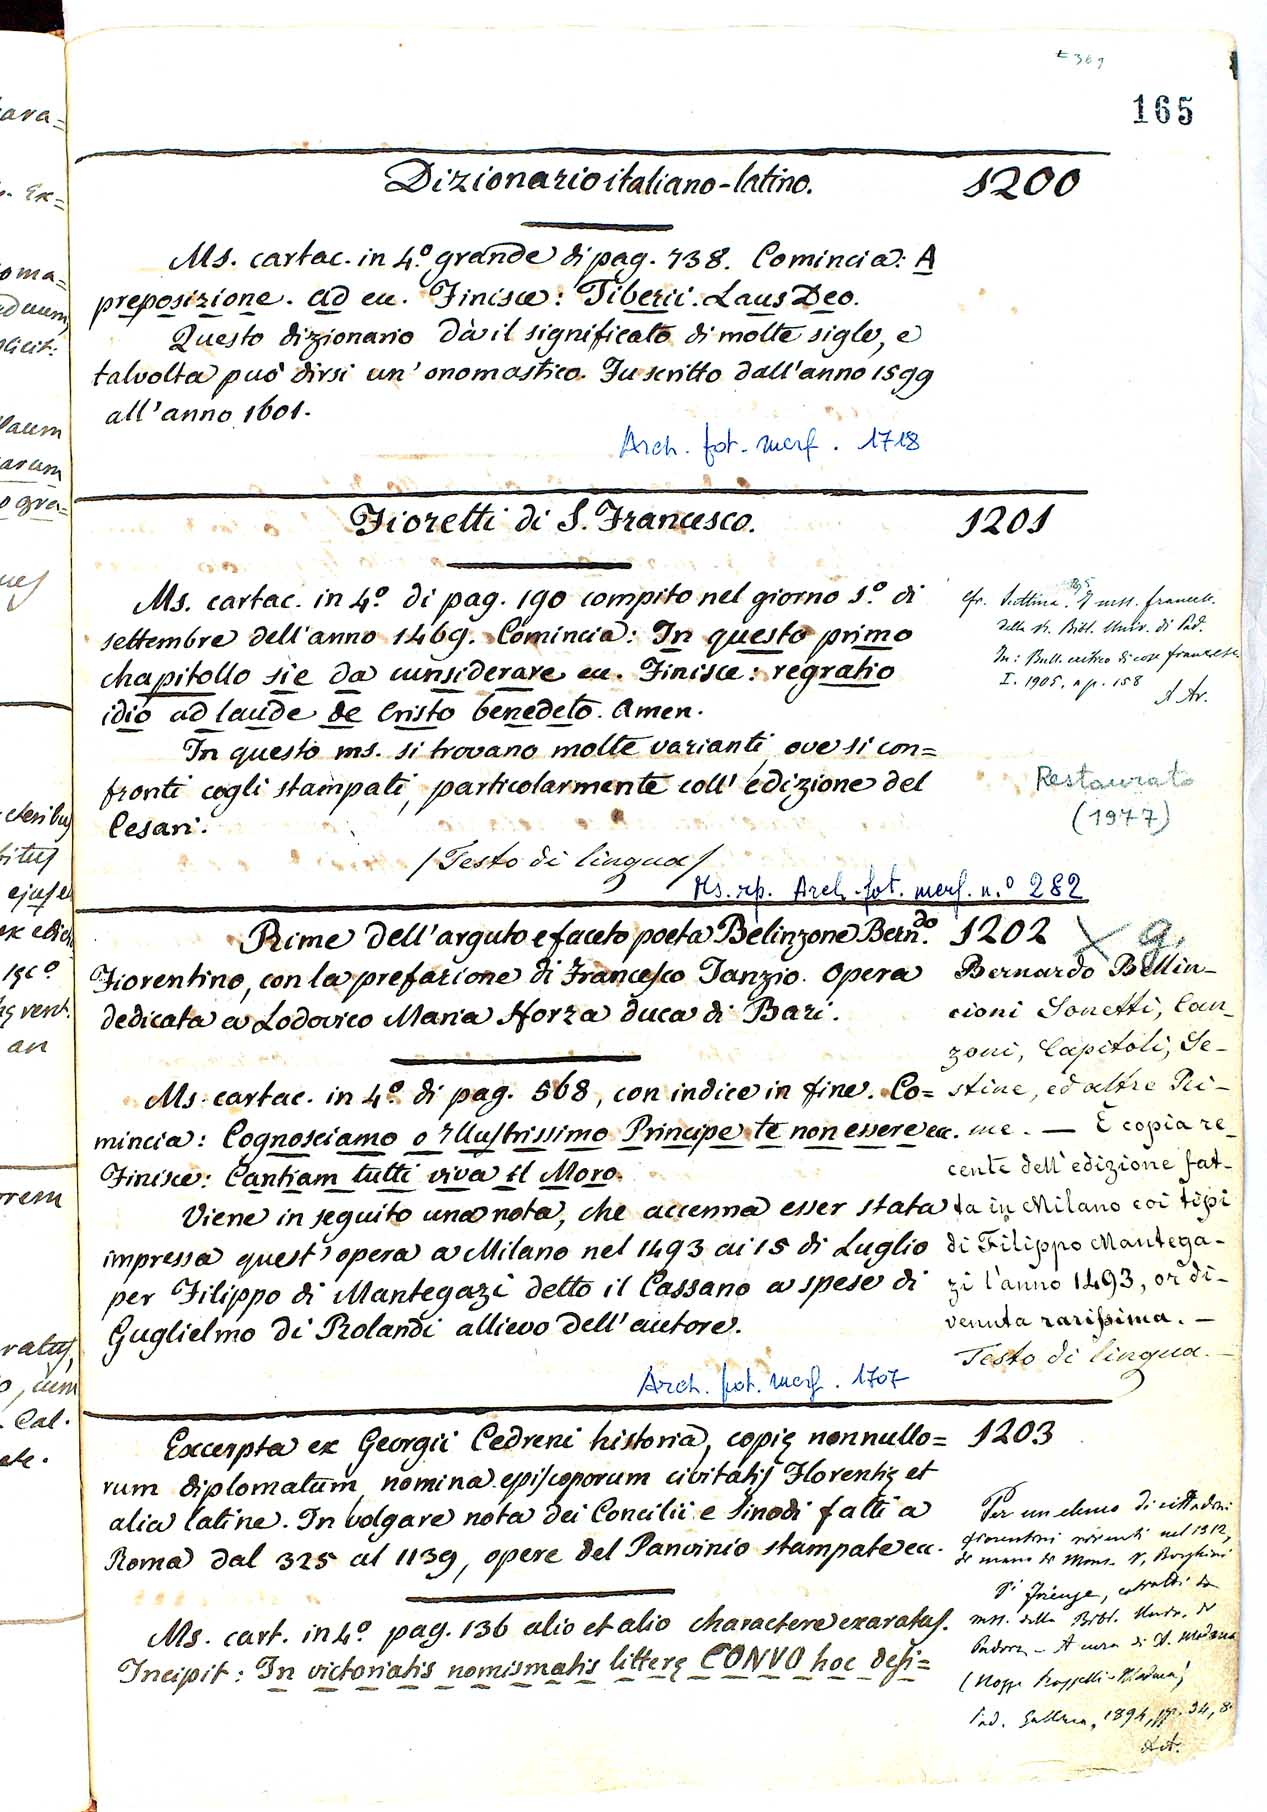 165
Dizionario italiano-latino. 1200
Ms. cartac. in 4.º grande di pag. 738. Comincia: A
preposizione. ad ec. Finisce: Tiberii. Laus Deo.
Questo dizionario dà il significato di molte sigle, e
talvolta può dirsi un' onomastico. Fu scritto dall'anno 1599
all'anno 1601.
Arch. fot. merf. 1718
Fioretti di S. Francesco. 1201
Ms. cartac. in 4.º di pag. 190 compito nel giorno 1.º di
settembre dell'anno 1469. Comincia: In questo primo
chapitollo sie da cunsiderare ec. Finisce: regratio
idio ad laude de Cristo benedeto. Amen.
In questo ms. si trovano molte varianti, ove si con=
fronti cogli stampati, particolarmente coll' edizione del
Cesari.
/Testo di lingua/
cfr. I mss. francesc.
della R. Bibl. Univ. di Pad.
In: Bull. critico di cose francesc.
I. 1905, a p. 158
A Av.
Restaurato
(1977)
Ms. rp. Arch. fot. merf. n.º 282
Rime dell'arguto e faceto poeta Belinzone Bern.do 1202
Fiorentino, con la prefazione di Francesco Tanzio. Opera
dedicata a Lodovico Maria Sforza duca di Bari.
Ms. cartac. in 4.º di pag. 568, con indice in fine. Co=
mincia: Cognosciamo o Illustrissimo Principe te non essere ec.
Finisce: Cantiam tutti viva il Moro.
Viene in seguito una nota, che accenna esser stata
impressa quest' opera a Milano nel 1493 ai 15 di Luglio
per Filippo di Mantegazi detto il Cassano a spese di
Guglielmo di Rolandi allievo dell'autore.
Bernardo Bellin-
cioni Sonetti, Can-
zoni, Capitoli, Se-
stine, ed altre Ri-
me. — È copia re-
cente dell' edizione fat-
ta in Milano coi tipi
di Filippo Mantega-
zi l'anno 1493, or di-
venuta rarissima. —
Testo di lingua. —
Arch. fot. merf. 1707
Excerpta ex Georgii Cedreni historia, copię nonnullo= 1203
rum diplomatum, nomina episcoporum civitatis Florentię et
alia latine. In volgare nota dei Concilii e Sinodi fatti a
Roma dal 325 al 1139, opere del Panvinio stampate ec.
Ms. cart. in 4.º pag. 136 alio et alio charactere exaratas.
Incipit: In victoriatis nomismatis litterę CONVO hoc desi=
Per un elenco di cittadini
fiorentini viventi nel 1312,
di mano di Mons. V. Borghini
di Firenze, estratti da
mss. della Bibl. Univ. di
Padova - A cura di A. Medin
Pad. Gallina, 1894, pp. 34, 8º